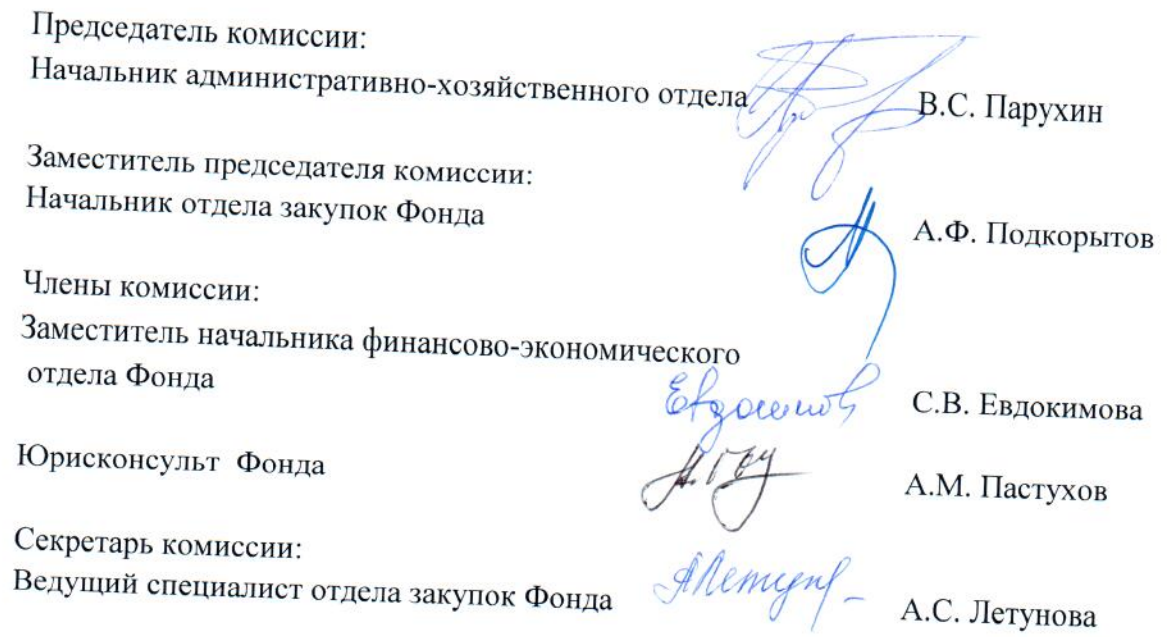 Председатель комиссии:
Начальник административно-хозяйственного отдела В.С. Парухин
Заместитель председателя комиссии:
Начальник отдела закупок Фонда А.Ф. Подкорытов
Члены комиссии:
Заместитель начальника финансово-экономического
отдела Фонда С.В. Евдокимова
Юрисконсульт Фонда А.М. Пастухов
Секретарь комиссии:
Ведущий специалист отдела закупок Фонда А.С. Летунова